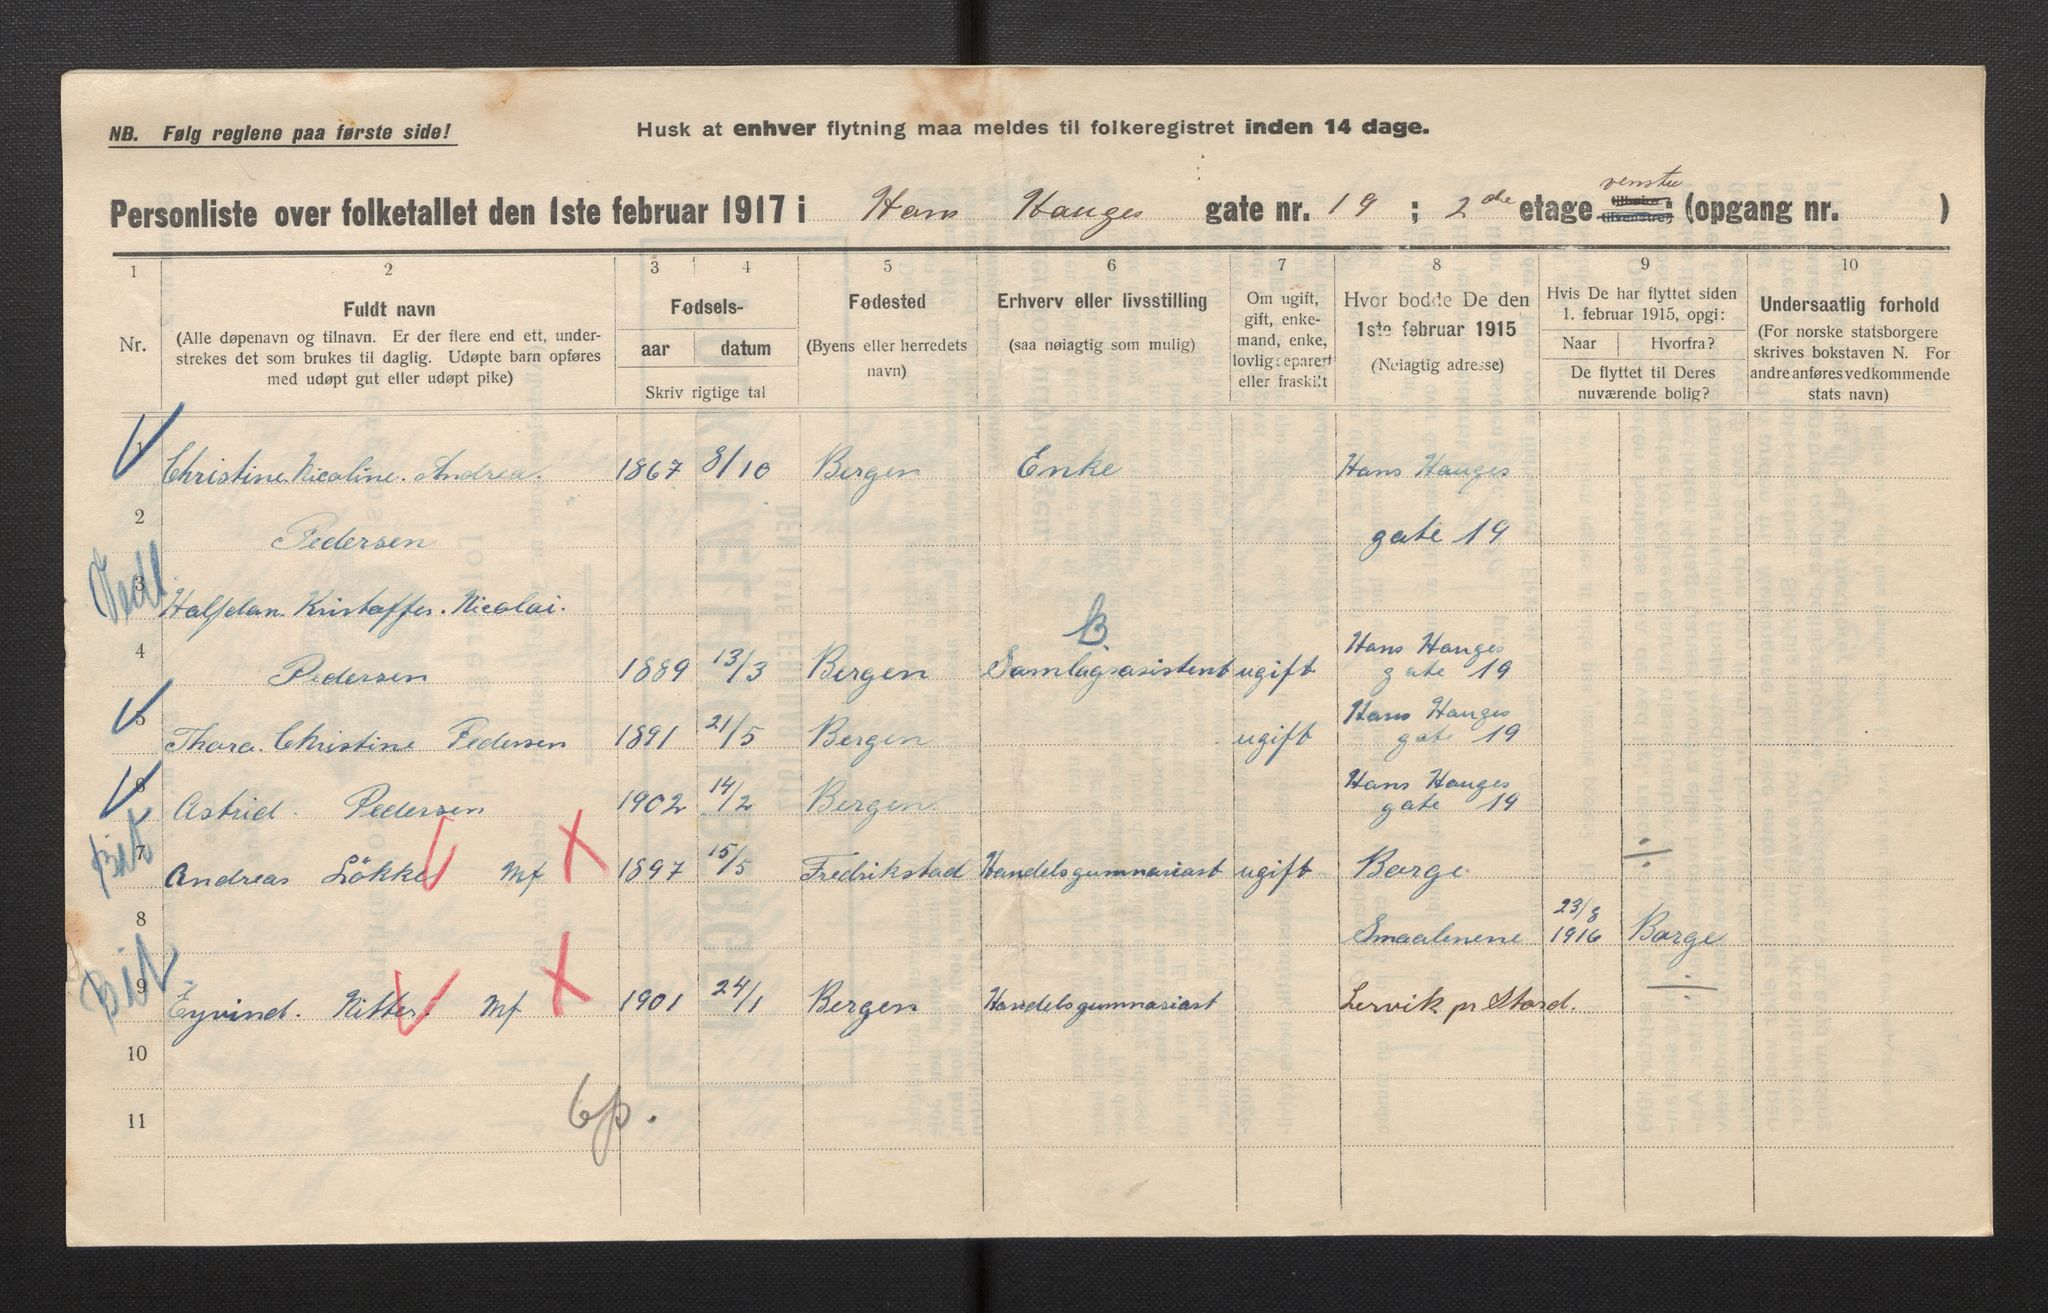 NB. Følg reglene paa første side!
Husk at enhver flytning maa meldes til folkeregistret inden 14 dage.
venstre
Personliste over folketallet den 1ste februar 1917 i Hans Hauges gate nr. 19 ; 2de etage (tilhøire, tilvenstre) (opgang nr. )
1 2 3 4 5 6 7 8 9 10
Nr.
Fuldt navn
(Alle døpenavn og tilnavn. Er der flere end ett, under-
strekes det som brukes til daglig. Udøpte barn opføres
med udøpt gut eller udøpt pike)
Fødsels-
aar datum
Skriv rigtige tal
Fødested
(Byens eller herredets
navn)
Erhverv eller livsstilling
(saa nøiagtig som mulig)
Om ugift,
gift, enke-
mand, enke,
lovlig separert
eller fraskilt
Hvor bodde De den
1ste februar 1915
(Nøiagtig adresse)
Hvis De har flyttet siden
1. februar 1915, opgi:
Naar Hvorfra?
De flyttet til Deres
nuværende bolig?
Undersaatlig forhold
(For norske statsborgere
skrives bokstaven N. For
andre anføres vedkommende
stats navn)
1 Christine Nicoline Andrea 1867 8/10 Bergen Enke Hans Hauges
2 Pedersen gate 19
3 Halfdan Kristoffer Nicolai.
B.
4 Pedersen 1889 13/3 Bergen Samlagsasistent ugift Hans Hauges
gate 19
5 Thora Christine Pedersen 1891 21/5 Bergen ugift Hans Hauges
gate 19
6 Astrid Pedersen 1902 14/2 Bergen Hans Hauges
gate 19
7 Andreas Lökke Mf X 1897 15/5 Fredrikstad Handelsgymnasiast ugift Borge ÷
8 Smaalenene 23/8 1916 Borge
9 Eyvind. Ritter. Mf X 1901 24/1 Bergen Handelsgymnasiast Lervik pr Stord. ÷
10
11
6p.